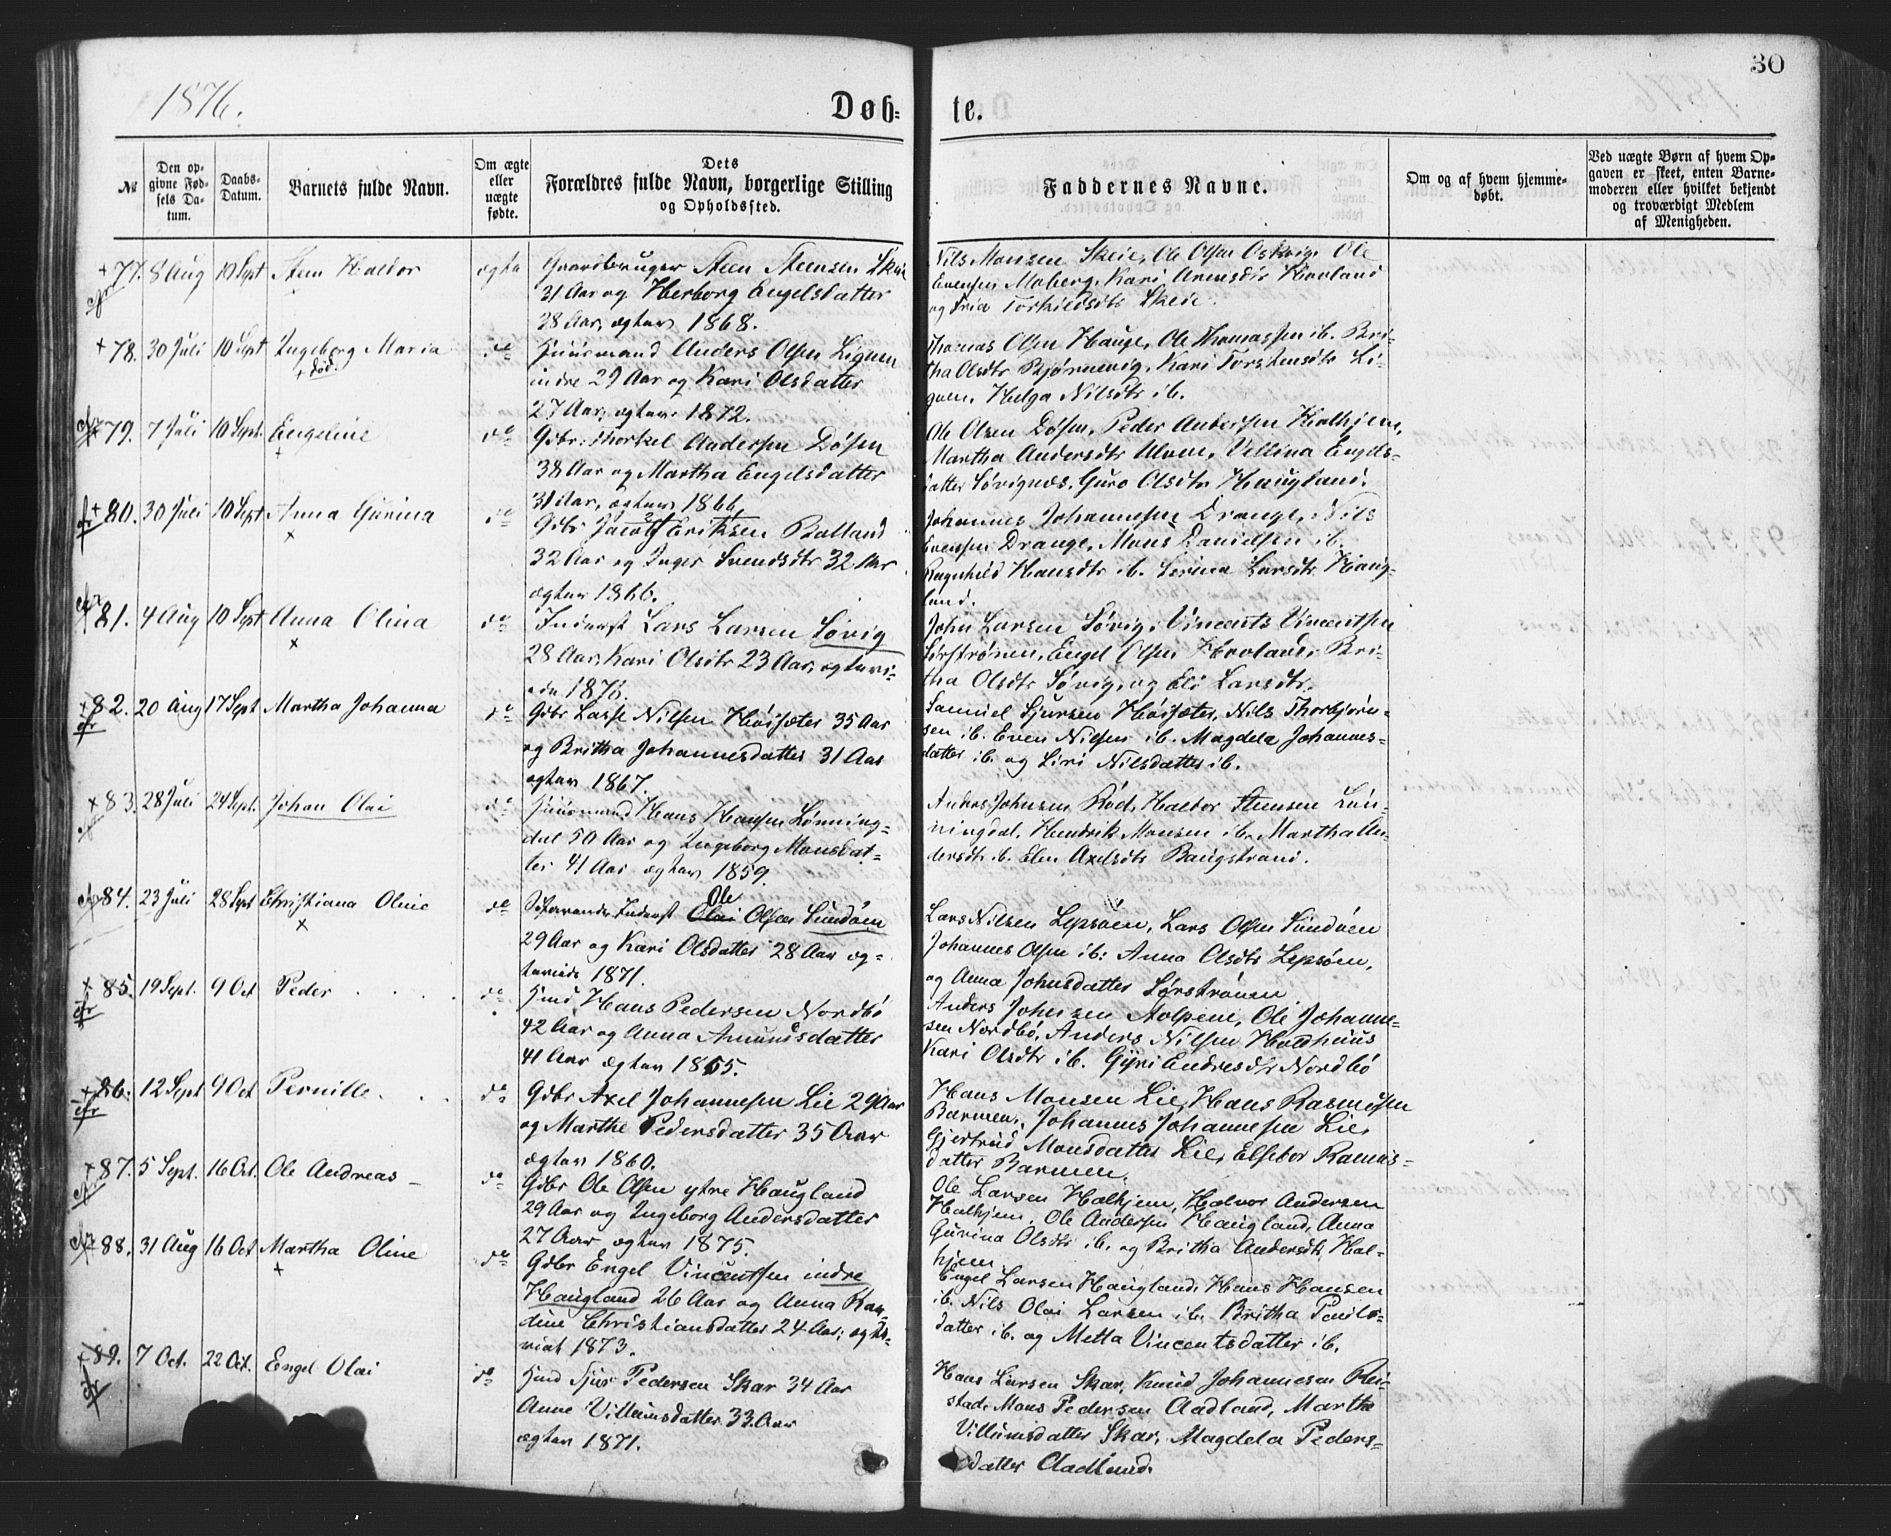 30
1876.
Døb-
te.
№
Den op-
givne Fød-
sels Da-
tum.
Daabs-
Datum.
Barnets fulde Navn.
Om ægte
eller
uægte
fødte.
Dets
Forældres fulde Navn, borgerlige Stilling
og Opholdssted.
Faddernes Navne.
Om og af hvem hjemme-
døbt.
Ved uægte Børn af hvem Op-
gaven er skeet, enten Barne-
moderen eller hvilket bekjendt
og troværdigt Medlem
af Menigheden.
77. 8 Aug 10 Sept Steen Haldor ægte
Gaardbruger Steen Steensen Skeie
31 Aar og Herborg Engelsdatter
28 Aar, ægtev 1868.
Nils Monsen Skeie, Ole Olsen Ole
Evensen Moberg, Kari Havland
og Torkildsdtr Skeie.
78. 30 Juli 10 Sept Ingeborg Maria do
død.
Huusmand Anders Olsen Liguen
indre 29 Aar og Kari Olsdatter
27 Aar, ægtev 1872.
Thomas Olsen Hauge, Ole Thomassen ib. Bri-
tha Olsdtr Bjørnevig, Kari Torstensdtr Li-
guen, Helga Nilsdtr ib.
79. 7 Juli 10 Sept. Engeline do
Gdbr: Thorkel Andersen Døsen
38 Aar og Martha Engelsdatter
31 Aar, ægtev 1866.
Ole Olsen Døsen, Peder Andersen Halhjem,
Martha Andersdtr Ulven, Vellina Engels-
datter Søvignæs, Guro Olsdtr Haugland.
80. 30 Juli 10 Sept Anna Gurina do
Gdbr Jacob Eriksen Balland
32 Aar og Inger Svendsdtr 32 Aar
ægtev 1866.
Johannes Johannesen Drange, Nils
Evensen Drange, Mons Danielsen ib.
Ragnhild Hansdtr ib. Serina Larsdtr Haug-
land.
81. 4 Aug 10 Sept Anna Olina do
Inderst Lars Larsen Søvig
28 Aar, Kari Olsdtr 23 Aar, ægtevi-
ede 1876.
John Larsen Søvig, Vincents Vincentsen
Sørstrønen, Engel Olsen Havland, Bri-
tha Olsdtr Søvig, og Eli Larsdtr.
82. 20 Aug 17 Sept Martha Johanna do
Gdbr Lasse Nilsen Høisæter 35 Aar
og Britha Johannesdatter 31 Aar
ægtev 1867.
Samuel Sjursen Høisæter, Nils Thorbjørn-
sen ib. Even Nilsen ib. Magdela Johannes-
datter ib. og Siri Nilsdatter ib.
83. 28 Juli 24 Sept. Johan Olai do
Huusmand Hans Hansen Lønning-
dal 50 Aar og Ingeborg Monsdat-
ter 41 Aar ægtev 1859.
Anders Johnsen Rød, Haldor Steensen Løn-
ningdal, Hendrik Monsen ib. Martha An-
dersdtr ib. Elen Axelsdtr Baugstrand.
84. 23 Juli 28 Sept Christiana Oline do
Ole
Inderst Olai Olsen Sundøen
29 Aar og Kari Olsdatter 28 Aar æg-
teviede 1871.
Lars Nilsen Lepsøen, Lars Olsen Sundøen
Johannes Olsen ib. Anna Olsdtr Lepsøen,
og Anna Johnsdatter Sørstrønen
85. 19 Sept. 9 Oct Peder do
Husd Hans Pedersen Nordbø
42 Aar og Anna Amundsdatter
41 Aar ægtev 1865.
Anders Johnsen Johanne-
sen Nordbø, Anders Nilsen Holdhuus
Kari Olsdtr ib. Gyri Endresdtr Nordbø
86. 12 Sept 9 Oct Pernille do
Gdbr Axel Johannesen Lie 29 Aar
og Marthe Pedersdatter 35 Aar
ægtev 1860.
Hans Monsen Lie, Hans Rasmussen
Barmen, Johannes Johannesen Lie,
Gjertrud Monsdatter Lie, Elsebor Rasmus-
datter Barmen.
87. 5 Sept. 16 Oct. Ole Andreas do
Gdbr Ole Olsen ytre Haugland
29 Aar og Ingeborg Andersdatter
27 Aar ægtev 1875.
Ole Larsen Halhjem, Halvor Andersen
Halhjem, Ole Andersen Haugland, Anna
Gurina Olsdtr ib. og Britha Andersdtr Hal-
hjem
88. 31 Aug 16 Oct Martha Oline do
Gdbr Engel Vincentsen indre
Haugland 26 Aar og Anna Kan-
dine Christiansdatter 24 Aar, ægte-
viet 1873.
Engel Larsen Haugland, Hans Hansen
ib. Nils Olai Larsen ib. Britha Pouls-
datter ib. og Metta Vincentsdatter ib.
89. 7 Oct. 22 Oct. Engel Olai do
Husd Sjur Pedersen Skar 34 Aar
Anne Villumsdatter 33 Aar
ægtev 1871.
Hans Larsen Skar, Knud Johannesen Rei-
stad, Mons Pedersen Aadland, Martha
Villumsdatter Skar, Magdela Peders-
datter Aadland.